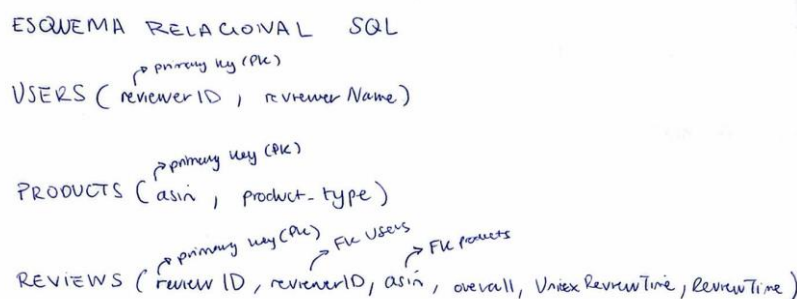 ESQUEMA RELACIONAL SQL
primary key (PK)
USERS ( reviewerID , reviewerName )
primary key (PK)
PRODUCTS ( asin , product_type )
primary key (PK) FK Users FK products
REVIEWS ( review ID , reviewerID , asin , overall , Unix ReviewTime , ReviewTime )